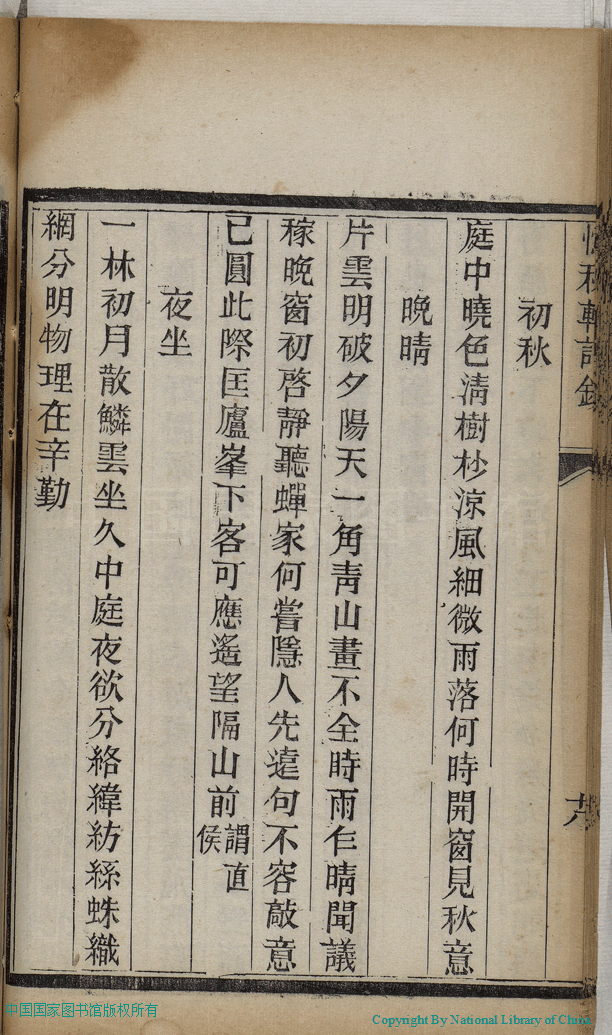 初秋
庭中曉色淸樹杪涼風細微雨落何時開窗見秋意
晚晴
片雲明破夕陽天一角靑山畫不全時雨乍晴聞議
稼晚窗初啓靜聽蟬家何嘗隱人先遠句不容敲意
已圓此際匡廬峯下客可應遙望隔山前謂直侯
夜坐
一林初月散鱗雲坐久中庭夜欲分絡緯紡絲蛛織
網分明物理在辛勤
中国国家图书馆版权所有
Copyright By National Library of China